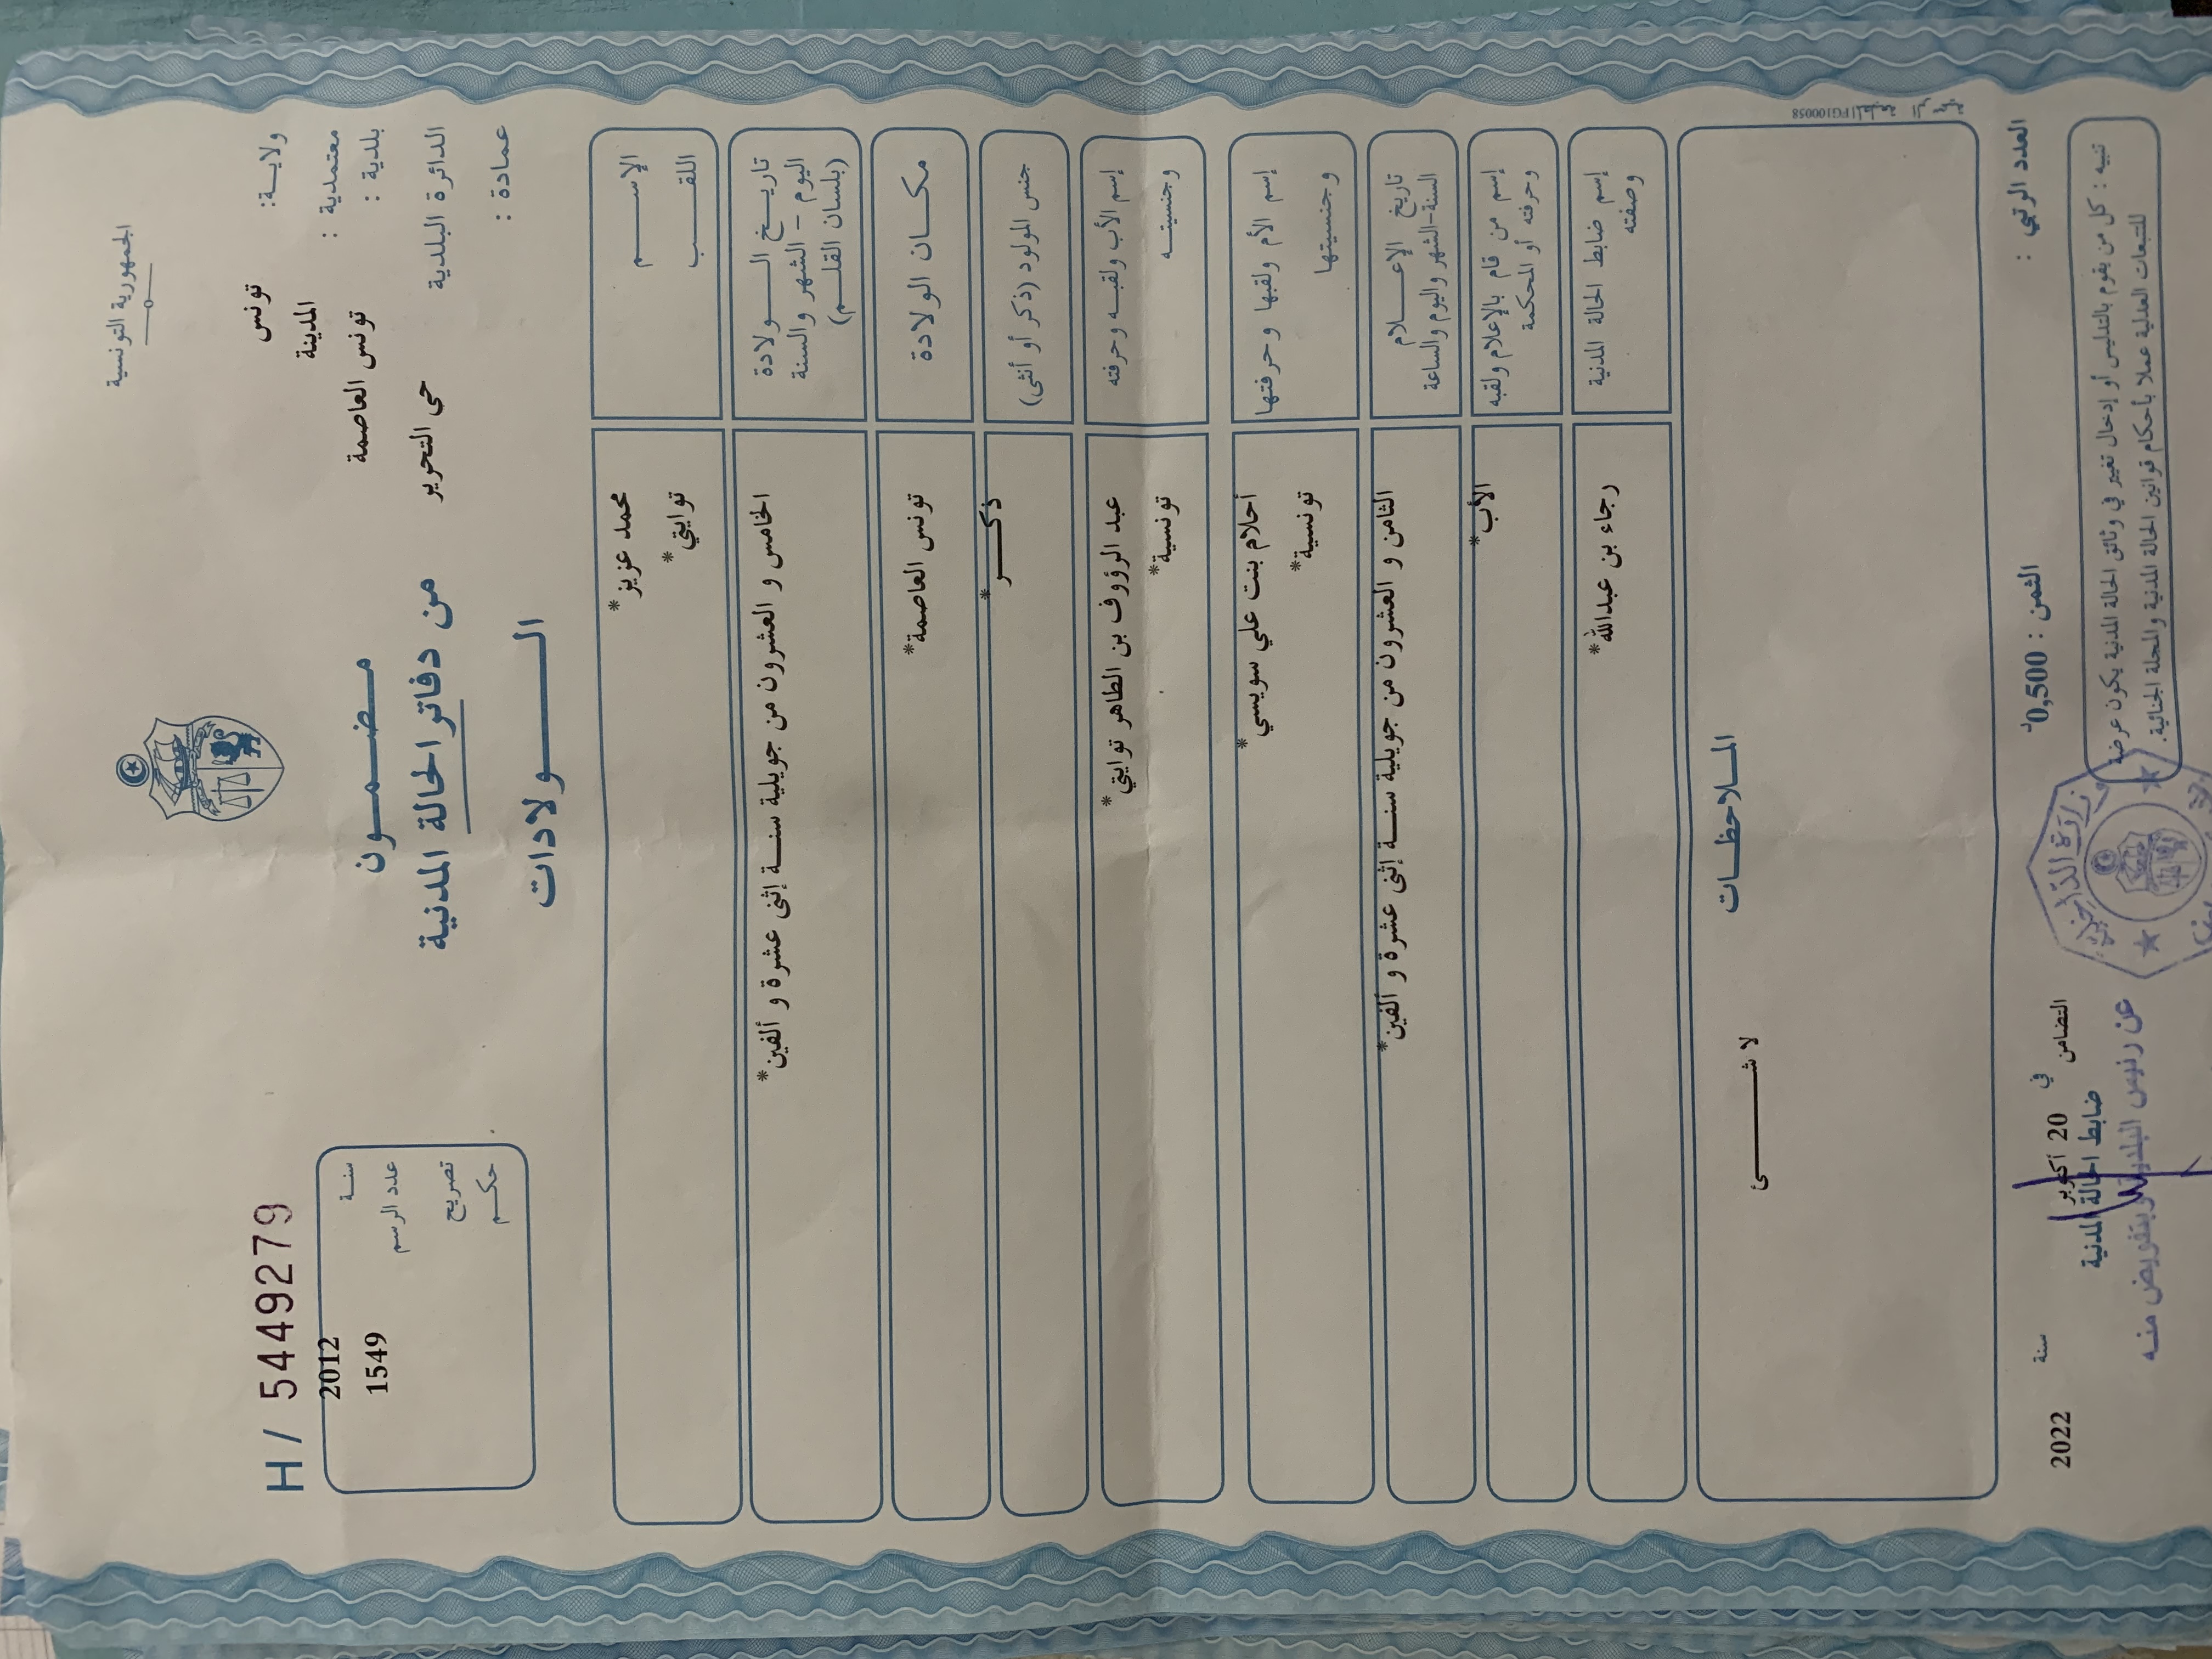 الجمهورية التونسية
H / 5449279
ولايـــة: تونس
معتمدية : المدينة
بلدية : تونس العاصمة
الدائرة البلدية حي التحرير
عمادة :
مضـــمـــون
من دفاتر الحالة المدنية
الـــــولادات
سنـة 2012
عدد الرسم 1549
تصريح
حكـــم
الإســـــــم محمد عزيز*
اللقـــــب توايتي*
تاريـــخ الـــــولادة
اليوم - الشهر والسنة
(بلسان القلـــم)
الخامس و العشرون من جويلية سنـــة إثنى عشرة و ألفين*
مكـــان الولادة تونس العاصمة*
جنس المولود (ذكر أو أنثى) ذكـــــر*
إسم الأب ولقبـــه وحرفته عبد الرؤوف بن الطاهر توايتي*
وجنسيتـــه تونسية*
إسم الأم ولقبها وحرفتها أحلام بنت علي سويسي*
وجنسيتها تونسية*
تاريخ الإعـــــلام
السنة-الشهر واليوم والساعة
الثامن و العشرون من جويلية سنـــة إثنى عشرة و ألفين*
إسم من قام بالإعلام ولقبه
وحرفته أو المحكمة
الأب*
إسم ضابط الحالة المدنية
وصفته
رجاء بن عبدالله*
المـــلاحظـــات
لا شـــــــئ
FG100058
العدد الرتبي :
الثمن : 0,500د
التضامن في 20 أكتوبر سنة 2022
ضابط الحالة المدنية
تنبيه : كل من يقوم بالتدليس أو إدخال تغيير في وثائق الحالة المدنية يكون عرضة
للتتبعات العدلية عملا بأحكام قوانين الحالة المدنية والمجلة الجنائية.
عن رئيس البلدية وبتفويض منـــه
وزارة الداخلية